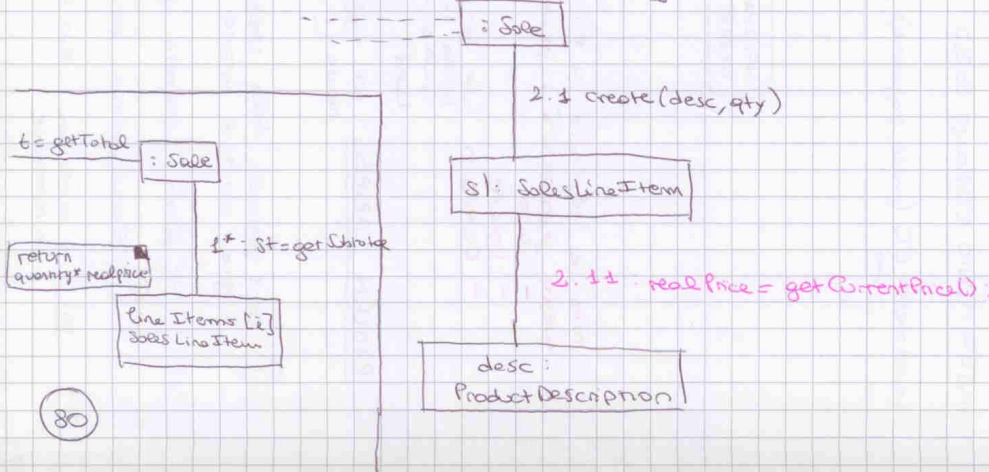 : Sale
2.1 create(desc, qty)
t = getTotal
: Sale
sl: SalesLineItem
1* : st = getSubtotal
return
quantity* realprice
2.11 realPrice = getCurrentPrice()
line Items [i]
SalesLineItem
desc :
ProductDescription
80